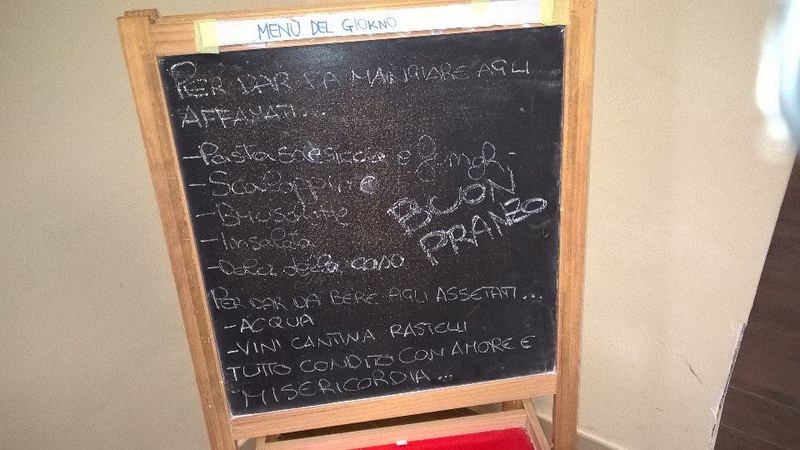 MENÙ DEL GIORNO
PER DAR DA MANGIARE AGLI
AFFAMATI...
-Pasta salsiccia e funghi
-Scaloppine
-Bruschette
-Insalata
-Dolci della casa
BUON
PRANZO
PER DAR DA BERE AGLI ASSETATI...
-ACQUA
-VINI CANTINA RASTELLI
TUTTO CONDITO CON AMORE E
MISERICORDIA...